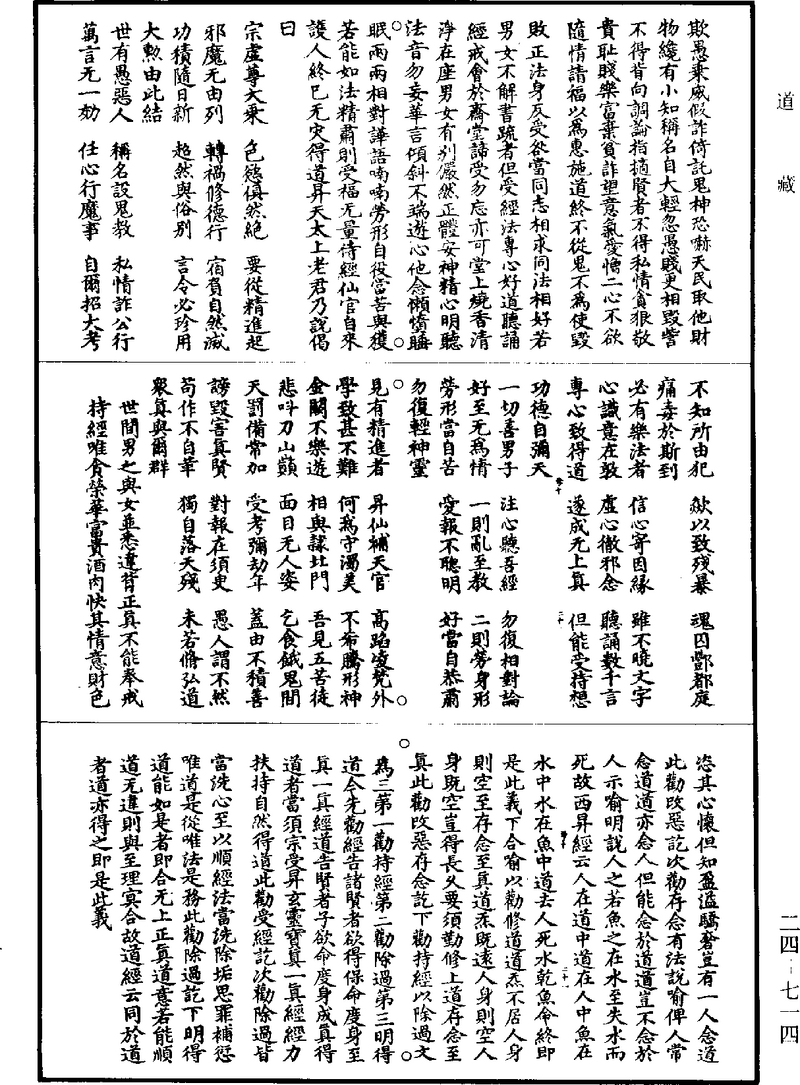 道藏
欺愚乘威假詐倚託鬼神恐嚇天民取他財
物纔有小知稱名自大輕忽愚賤更相毀訾
不得背向調論指擿賢者不得私情貪狠敬
貴恥賤樂富棄貧詐望意氣愛憎二心不欲
隨情請福以為惠施道終不從鬼不為使毀
敗正法身反受欲當同志相求同法相好若
男女不解書疏者但受經法專心好道聽誦
經戒會於齋堂諦受勿忘亦可堂上燒香清
淨在座男女有別嚴然正體安神精心明聽
法音勿妄華言傾斜不端遊心他念懶惰睡
眠兩兩相對譁語喃喃勞形自役當苦與獲
若能如法精肅則受福无量侍經仙官自來
護人終已无灾得道昇天太上老君乃說偈
曰
宗虛尊大乘 色慾俱然絕 要從精進起
邪魔无由列 轉禍修德行 宿賫自然滅
功積隨日新 超然與俗別 言令必珍用
大勲由此結
世有愚惡人 稱名設鬼教 私情詐公行
萬言无一効 任心行魔事 自爾招大考
不知所由犯 歘以致殘暴 魂囚酆都庭
痛毒於斯到
必有樂法者 信心寄因緣 雖不曉文字
心識意在敬 虛心徹邪念 聽誦數千言
專心致得道 遂成无上真 但能受持想
功德自彌天
一切善男子 注心聽吾經 勿復相對論
好至无為情 一則亂至教 二則勞身形
勞形當自苦 受報不聰明 好當自恭肅
勿復輕神靈
見有精進者 昇仙補天官 高蹈凌梵外
學致甚不難 何為守濁美 不希騰形神
金闕不樂遊 相與隸北門 吾見五苦徒
悲叫刀山巔 面目无人姿 乞食餓鬼間
天罰備常加 受考彌劫年 蓋由不積善
謗毀害真賢 對報在須臾 愚人謂不然
苟作不自革 獨自落天殘 未若脩弘道
眾真與爾群
世間男之與女並悉違背正真不能奉戒
持經唯貪榮華富貴酒肉快其情意財色
恣其心懷但知盈溢驕奢豈有一人念道
此勸改惡訖次勸存念有法說喻俾人常
念道道亦念人但能念於道道豈不念於
人示喻明說人之若魚之在水至失水而
死故西昇經云人在道中道在人中魚在
水中水在魚中道去人死水乾魚命終即
是此義下合喻以勸修道道炁不居人身
則空至存念至真道炁既遠人身則空人
身既空豈得長久要須勤修上道存念至
真此勸改惡存念訖下勸持經以除過文
為三第一勸持經第二勸除過第三明得
道今先勸經告諸賢者欲得保命度身至
真一真經道告賢者子欲命度身成真得
道者當須宗受昇玄靈寶真一真經經力
扶持自然得道此勸受經訖次勸除過皆
當洗心至以順經法當洗除垢思罪補愆
唯道是從唯法是務此勸除過訖下明得
道能如是者即合无上正真道意若能順
道无違則與至理冥合故道經云同於道
者道亦得之即是此義
二四-七一四